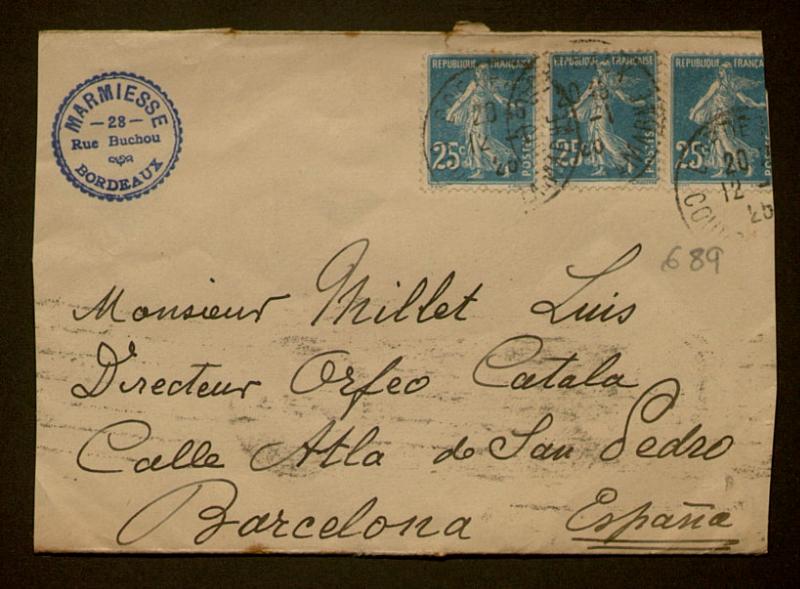 MARMIESSE
—28—
Rue Buchou
BORDEAUX
REPUBLIQUE FRANÇAISE
25c
POSTES
REPUBLIQUE FRANÇAISE
25c
POSTES
REPUBLIQUE FRANÇAISE
25c
20
12
20
12
689
Monsieur Millet Luis
Directeur Orfeo Catala
Calle Atla de San Pedro
Barcelona España